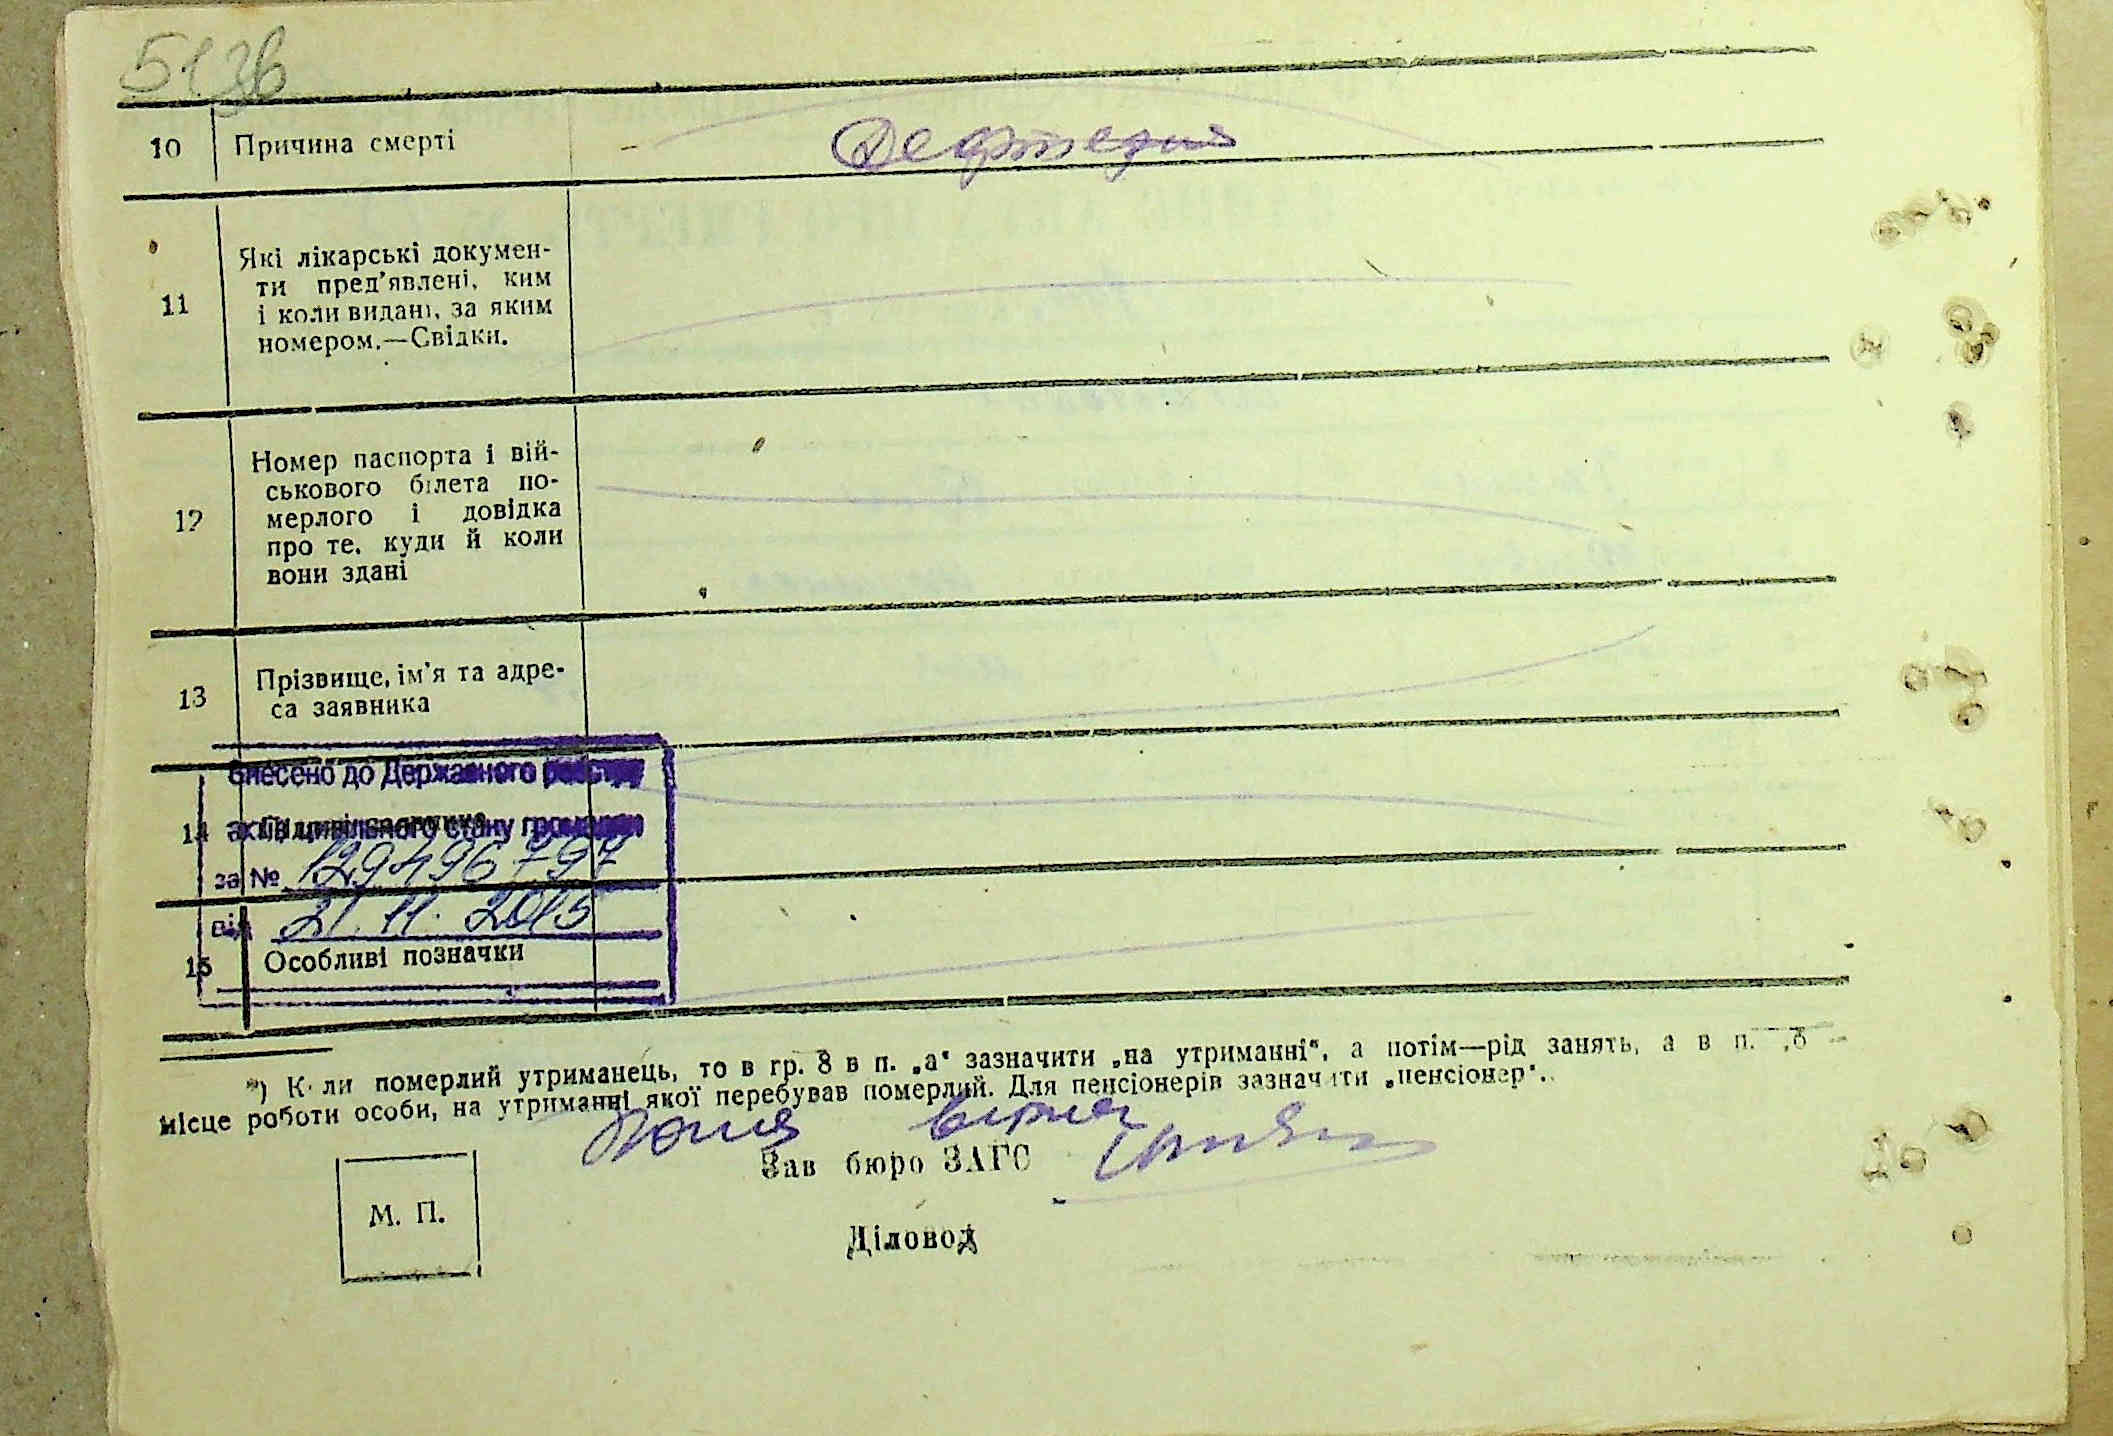 5136
10 Причина смерті Дефтерия
11 Які лікарські докумен-
ти пред'явлені, ким
і коли видані, за яким
номером.—Свідки.
12 Номер паспорта і вій-
ськового білета по-
мерлого і довідка
про те, куди й коли
вони здані
13 Прізвище, ім'я та адре-
са заявника
Внесено до Державного реєстру
14
актів цивільного стану громадян
за № 129496797
від 21.11.2015
15 Особливі позначки
*) К ли померлий утриманець, то в гр. 8 в п. „а“ зазначити „на утриманні“, а потім—рід занять, а в п. „б
місце роботи особи, на утриманні якої перебував померлий. Для пенсіонерів зазначити „пенсіонер“.
Копія вірна
Зав бюро ЗАГС
М. П.
Діловод